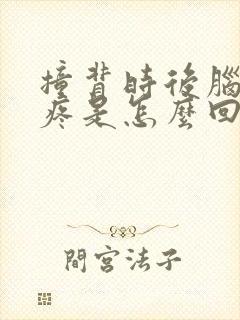 撞背時後腦
疼是怎麼回
間宮法子